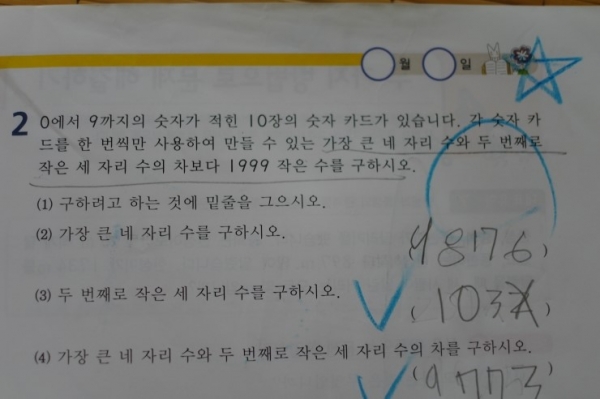 월 일
2 0에서 9까지의 숫자가 적힌 10장의 숫자 카드가 있습니다. 각 숫자 카
드를 한 번씩만 사용하여 만들 수 있는 가장 큰 네 자리 수와 두 번째로
작은 세 자리 수의 차보다 1999 작은 수를 구하시오.
(1) 구하려고 하는 것에 밑줄을 그으시오.
(2) 가장 큰 네 자리 수를 구하시오.
(9876)
(3) 두 번째로 작은 세 자리 수를 구하시오.
(103
(4) 가장 큰 네 자리 수와 두 번째로 작은 세 자리 수의 차를 구하시오.
(9773)